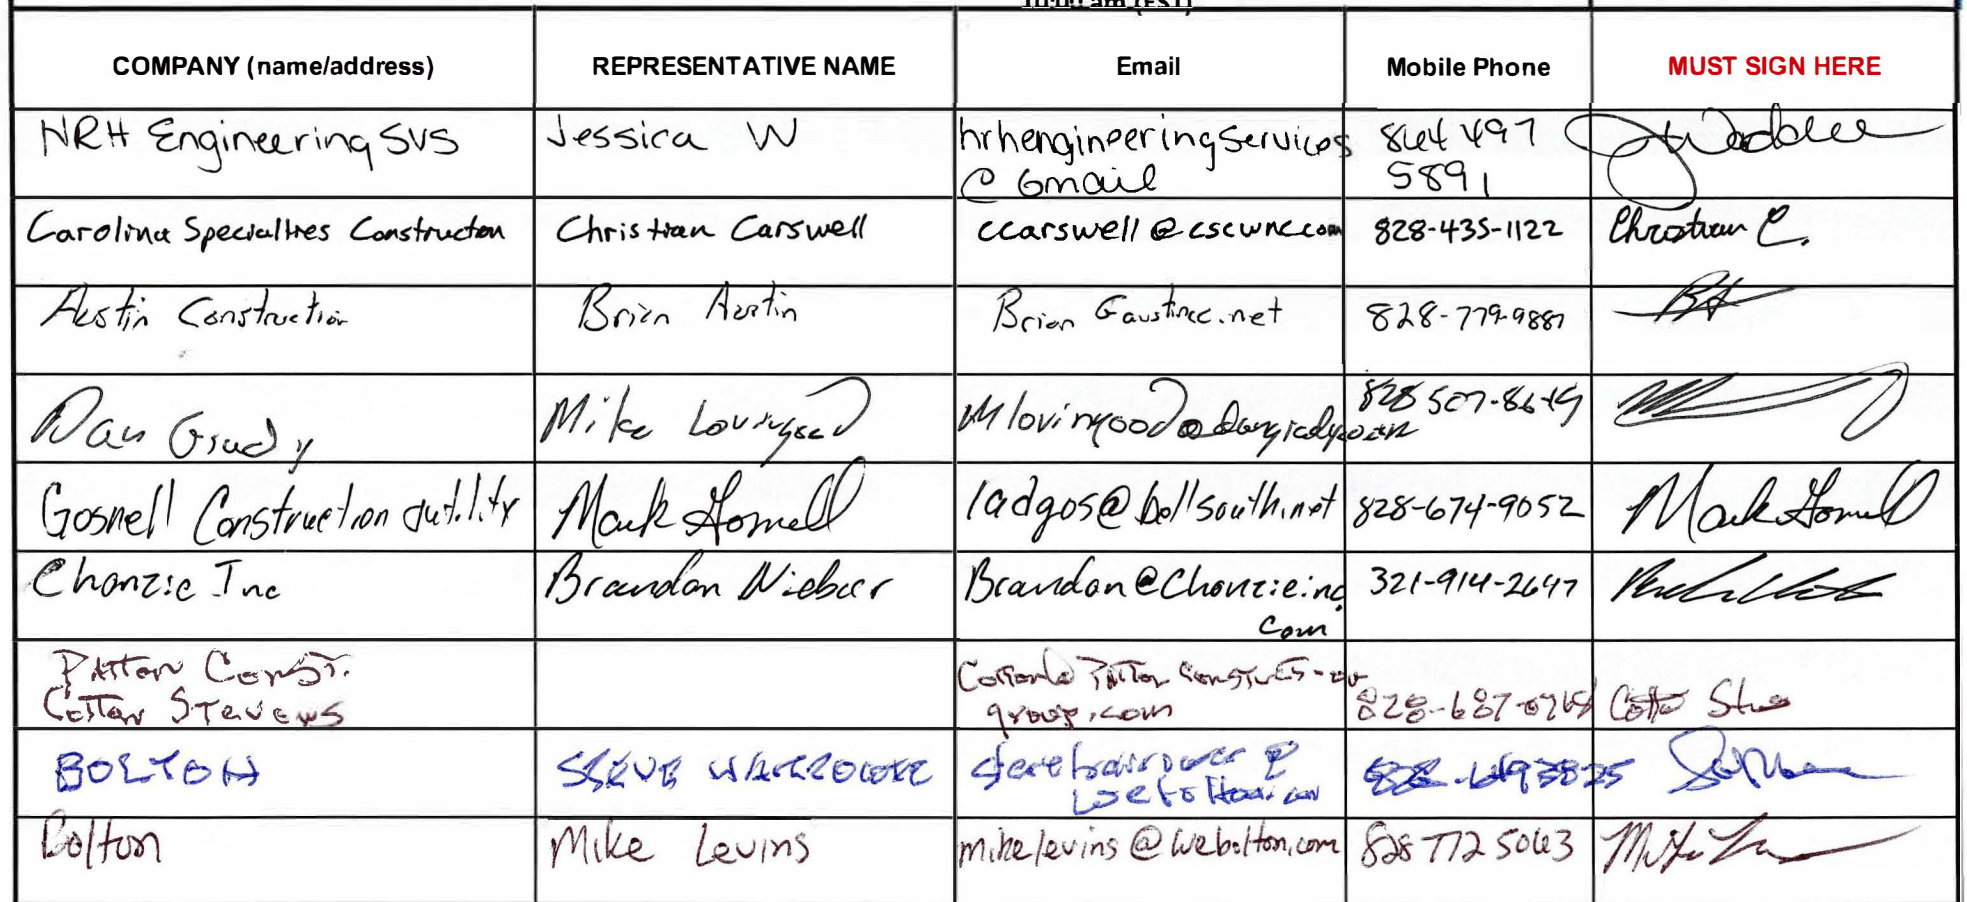 10:00 am (EST)
COMPANY (name/address) REPRESENTATIVE NAME Email Mobile Phone MUST SIGN HERE
HRH Engineering SVS Jessica W hrhengineeringservices 864 497
@ Gmail 5891
Carolina Specialties Construction Christian Carswell ccarswell@cscwnc.com 828-435-1122 Christian C.
Austin Construction Brian Austin Brian 828-779-9881
Dan Grady Mike Lovingood Mlovingood@dangrady.com 828 507-8649
Gosnell Construction & utility Mark Gosnell ladgos@bellsouth.net 828-674-9052 Mark Gosnell
Chonzie Inc Brandon Niebuer Brandon@Chonzieinc. 321-914-2647
com
Patton Const.
Cotton Stevens group.com 828-687-
BOLTON STEVE
Bolton Mike Levins mikelevins@webolton.com 828 772 5063